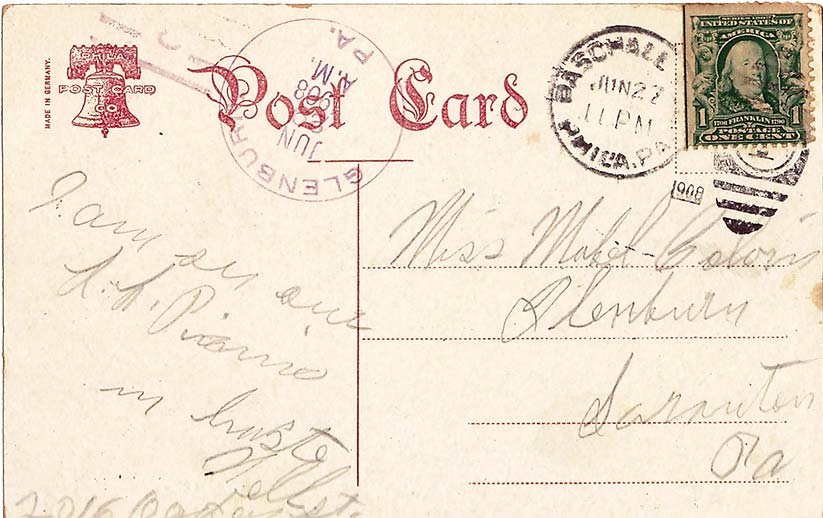 MADE IN GERMANY.
PHILA.
POST CARD
CO
Post Card
GLENBURN
PA.
JUN
A.M.
1908
PASCHALL
JUN 27
11 PM
PHILA. PA.
1908
SERIES 1902
UNITED STATES OF
AMERICA
1706 FRANKLIN 1790
POSTAGE
1 ONE CENT 1
I am on our
S.S. Picnic
in haste
Nellie
2016
Miss Mabel
Glenburn
Scranton
Pa